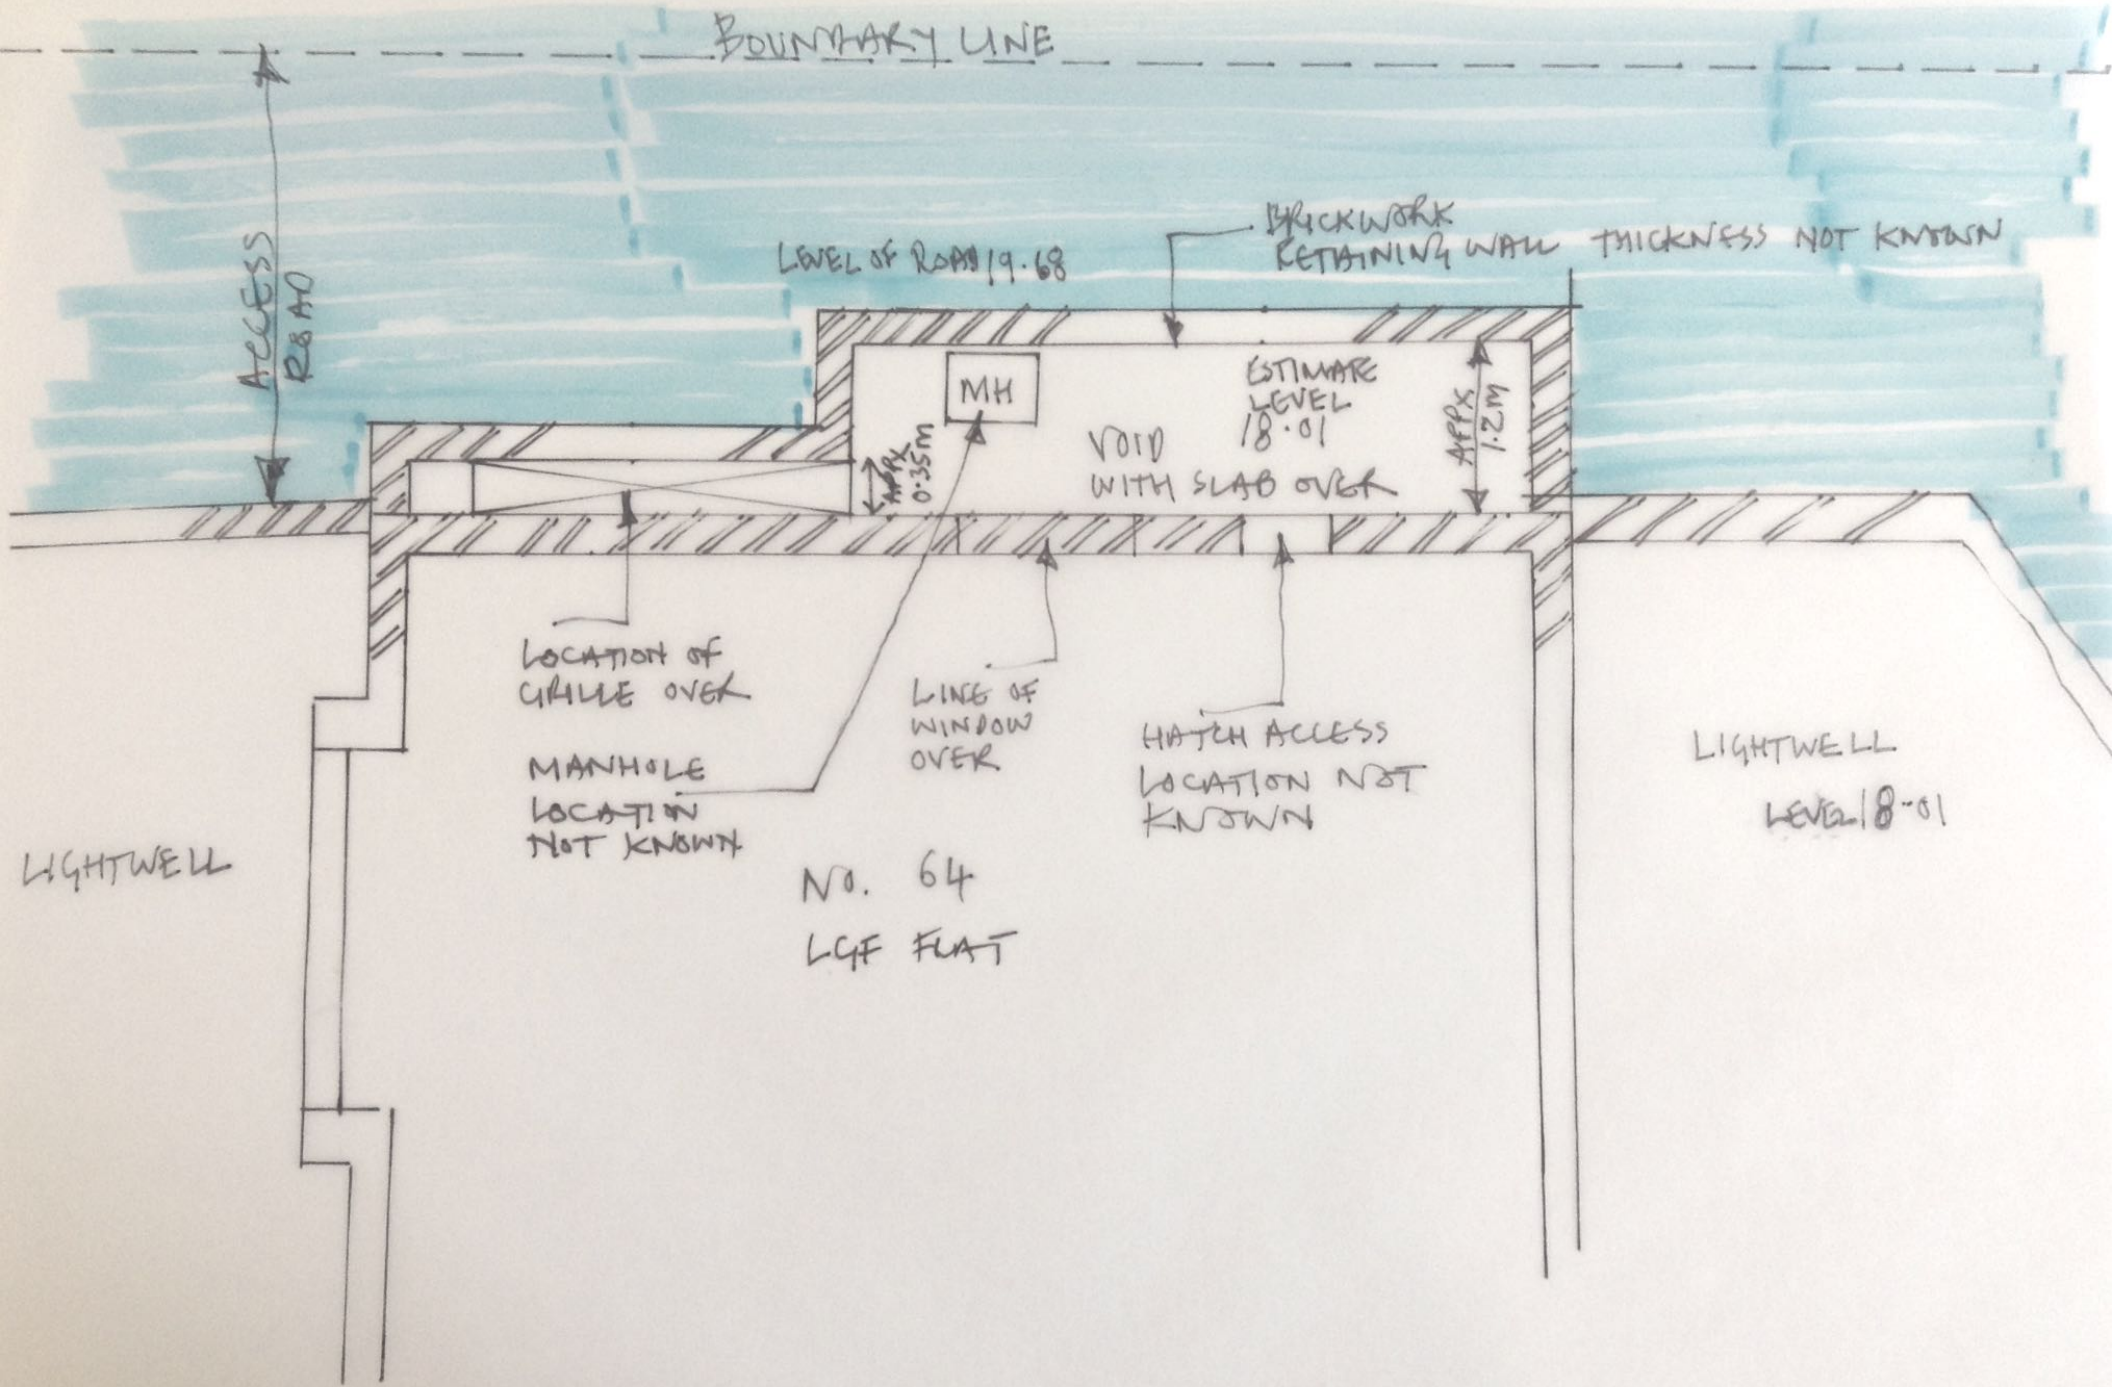 BOUNDARY LINE
ACCESS
ROAD
LEVEL OF ROAD 19.68
BRICKWORK
RETAINING WALL THICKNESS NOT KNOWN
MH
ESTIMATE
LEVEL
18.01
VOID
WITH SLAB OVER
APPX
0.35M
APPX
1.2M
LOCATION OF
GRILLE OVER
MANHOLE
LOCATION
NOT KNOWN
LINE OF
WINDOW
OVER
HATCH ACCESS
LOCATION NOT
KNOWN
LIGHTWELL
LEVEL 18.01
LIGHTWELL
NO. 64
LGF FLAT